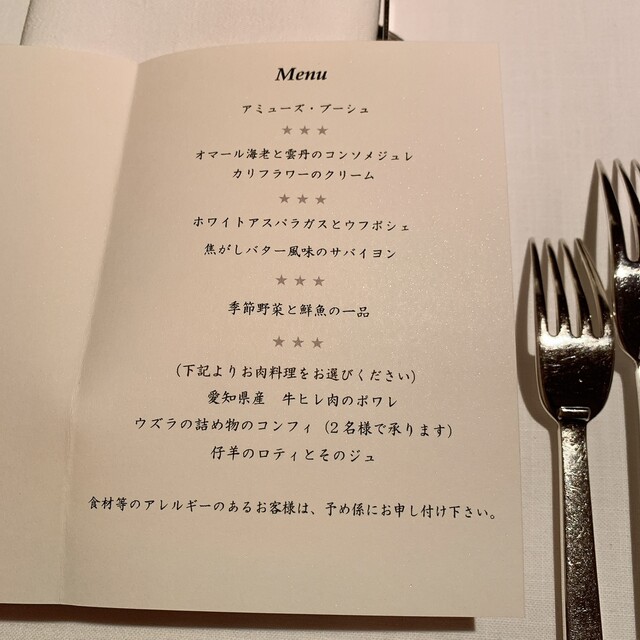 Menu
アミューズ・ブーシュ
★ ★ ★
オマール海老と雲丹のコンソメジュレ
カリフラワーのクリーム
★ ★ ★
ホワイトアスパラガスとウフポシェ
焦がしバター風味のサバイヨン
★ ★ ★
季節野菜と鮮魚の一品
★ ★ ★
(下記よりお肉料理をお選びください)
愛知県産　牛ヒレ肉のポワレ
ウズラの詰め物のコンフィ (2名様で承ります)
仔羊のロティとそのジュ
食材等のアレルギーのあるお客様は、予め係にお申し付け下さい。